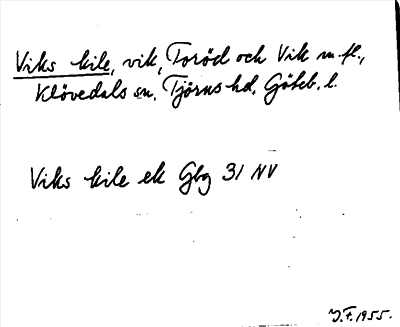 Viks kile, vik, Toröd och Vik m.fl.,
Klövedals sn, Tjörns hd, Göteb. l.
Viks kile ek Gbg 31 NV
J.F. 1955.